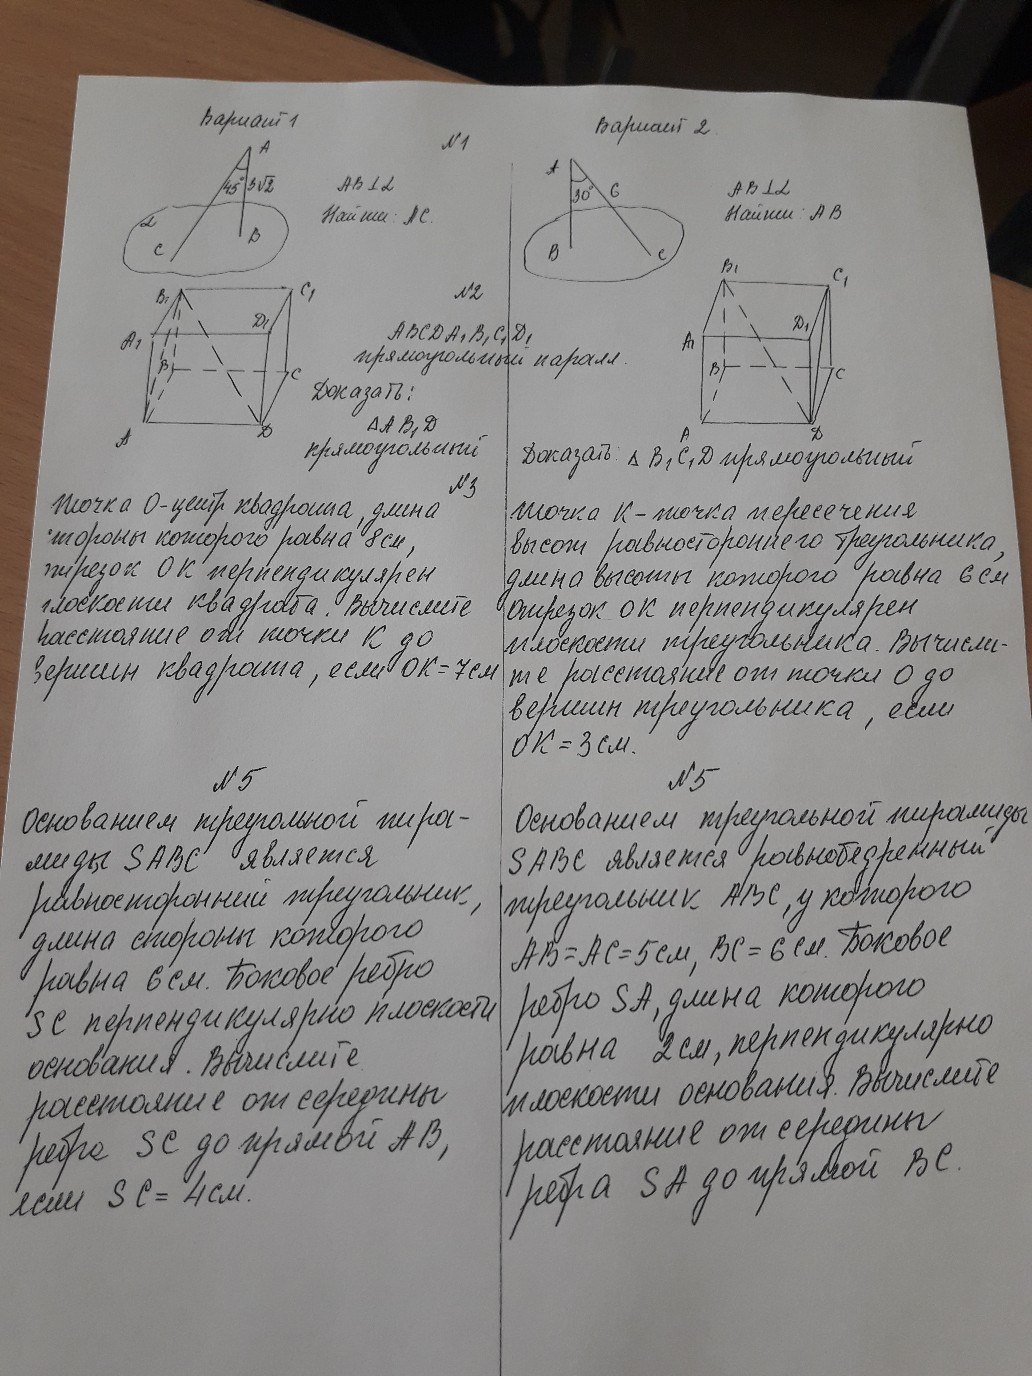 Вариант 1
N1
Вариант 2.
A
45°
3√2
AB⊥α
Найти: AC.
α
C
B
A
30°
6
AB⊥α
Найти: AB
B
C
N2
ABCDA₁B₁C₁D₁
прямоугольный паралл.
Доказать:
△AB₁D
прямоугольный
B₁
C₁
A₁
D₁
B
C
A
D
B₁
C₁
A₁
D₁
B
C
A
D
Доказать: △B₁C₁D прямоугольный
N3
Точка O-центр квадрата, длина
стороны которого равна 8см,
отрезок OK перпендикулярен
плоскости квадрата. Вычислите
расстояние от точки K до
вершин квадрата, если OK=7см
Точка K-точка пересечения
высот равностороннего треугольника,
длина высоты которого равна 6см
Отрезок OK перпендикулярен
плоскости треугольника. Вычисли-
те расстояние от точки O до
вершин треугольника, если
OK=3см.
N5
Основанием треугольной пира-
миды SABC является
равносторонний треугольник,
длина стороны которого
равна 6см. Боковое ребро
SC перпендикулярно плоскости
основания. Вычислите
расстояние от середины
ребра SC до прямой AB,
если SC=4см.
N5
Основанием треугольной пирамиды
SABC является равнобедренный
треугольник ABC, у которого
AB=AC=5см, BC=6см. Боковое
ребро SA, длина которого
равна 2см, перпендикулярно
плоскости основания. Вычислите
расстояние от середины
ребра SA до прямой BC.